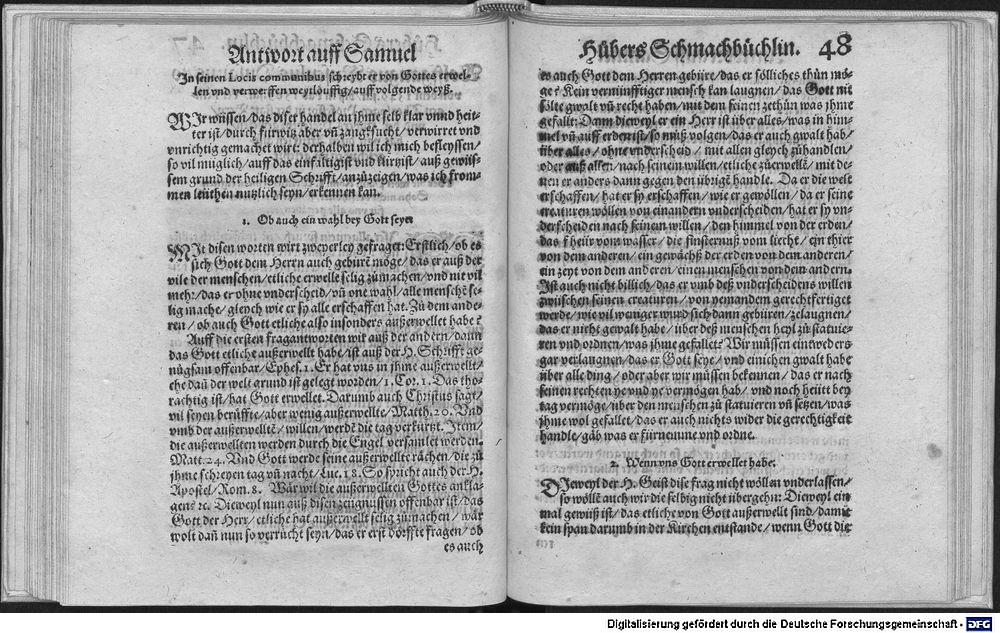 Antwort auff Samuel
In seinen Locis communibus schreybt er von Gottes erwel-
len vnd verwerffen weytlöuffig/auff volgende weyß.
WIr wüssen/das diser handel an jhme selb klar vnnd heit-
ter ist/durch fürwitz aber vñ zangksucht/verwirret vnd
vnrichtig gemachet wirt: derhalben wil ich mich befleyssen/
so vil müglich/auff das einfältigist vnd kürtzist/auß gewüs-
sem grund der heiligen Schrifft/anzüzeigen/was ich from-
men leüthen nutzlich seyn/erkennen kan.
1. Ob auch ein wahl bey Gott seye.
MIt disen worten wirt zweyerley gefraget: Erstlich/ob es
sich Gott dem Herrn auch gebürē möge/das er auß der
vile der menschen/etliche erwelle selig zůmachen/vnd nit vil
mehr/das er ohne vnderscheid/vñ one wahl/alle menschē se-
lig mache/gleych wie er sy alle erschaffen hat. Zů dem ande-
ren/ob auch Gott etliche also insonders außerwellet habe?
Auff die ersten frag antworten wir auß der andern/dann
das Gott etliche außerwellt habe/ist auß der H. Schrifft ge-
nůgsam offenbar/Ephes. 1. Er hat vns in jhme außerwellt/
ehe dañ der welt grund ist gelegt worden/1. Cor. 1. Das tho-
rachtig ist/hat Gott erwellet. Darumb auch Christus sagt/
vil seyen berüffte/aber wenig außerwellte/Matth. 20. Vnd
vmb der außerwelltē/willen/werdē die tag verkürtzt. Item/
die außerwellten werden durch die Engel versamlet werden.
Matt. 24. Vnd Gott werde seine außerwellte rächen/die zů
jhme schreyen tag vñ nacht/Luc. 18. So spricht auch der H.
Apostel/Rom. 8. Wär wil die außerwellten Gottes ankla-
gen? ꝛc. Dieweyl nun auß disen zeugnussen offenbar ist/das
Gott der Herr/etliche hat außerwellt selig zůmachen/wär
wolt dañ nun so verrücht seyn/das er erst dörffte fragen/ob
es auch
Hůbers Schmachbüchlin. 48
es auch Gott dem Herren gebüre/das er sölliches thůn mö-
ge? Kein vernünfftiger mensch kan laugnen/das Gott nit
sölte gwalt vñ recht haben/mit dem seinen zethůn was jhme
gefallt: Dann dieweyl er ein Herr ist über alles/was in him-
mel vñ auff erden ist/so můß volgen/das er auch gwalt hab/
über alles/ohne vnderscheid/mit allen gleych zůhandlen/
oder auß allen/nach seinem willen/etliche zůerwellē/mit de-
nen er anders dann gegen den übrigē handle. Da er die welt
erschaffen/hat er sy erschaffen/wie er gewöllen/da er seine
creaturen wöllen von einandern vnderscheiden/hat er sy vn-
derscheiden nach seinem willen/den himmel von der erden/
das fheür vom wasser/die finsternuß vom liecht/ein thier
von dem anderen/ein gewächß der erden von dem anderen/
ein zeyt von dem anderen/einen menschen von dem andern.
Ist auch nicht billich/das er vmb deß vnderscheidens willen
zwüschen seinen creaturen/von yemandem gerechtfertiget
werde/wie vil weniger wird sich dann gebüren/zelaugnen/
das er nicht gewalt habe/über deß menschen heyl zů statuie-
ren vnd ordnen/was jhme gefallet? Wir müssen eintweders
gar verlaugnen/das er Gott seye/vnd einichen gwalt habe
über alle ding/oder aber wir müssen bekennen/das er nach
seinen rechten ye vnd ye vermögen hab/vnd noch heütt bey
tag vermöge/über den menschen zů statuieren vñ setzen/was
jhme wol gefallet/das er auch nichts wider die gerechtigkeit
handle/gäb was er fürnemme vnd ordne.
2. Wenn vns Gott erwellet habe.
DIeweyl der H. Geist dise frag nicht wöllen vnderlassen/
so wöllē auch wir die selbig nicht übergehn: Dieweyl ein
mal gewüß ist/das etliche von Gott außerwellt sind/damit
kein span darumb in der Kirchen entstande/wenn Gott die
Digitalisierung gefördert durch die Deutsche Forschungsgemeinschaft - DFG